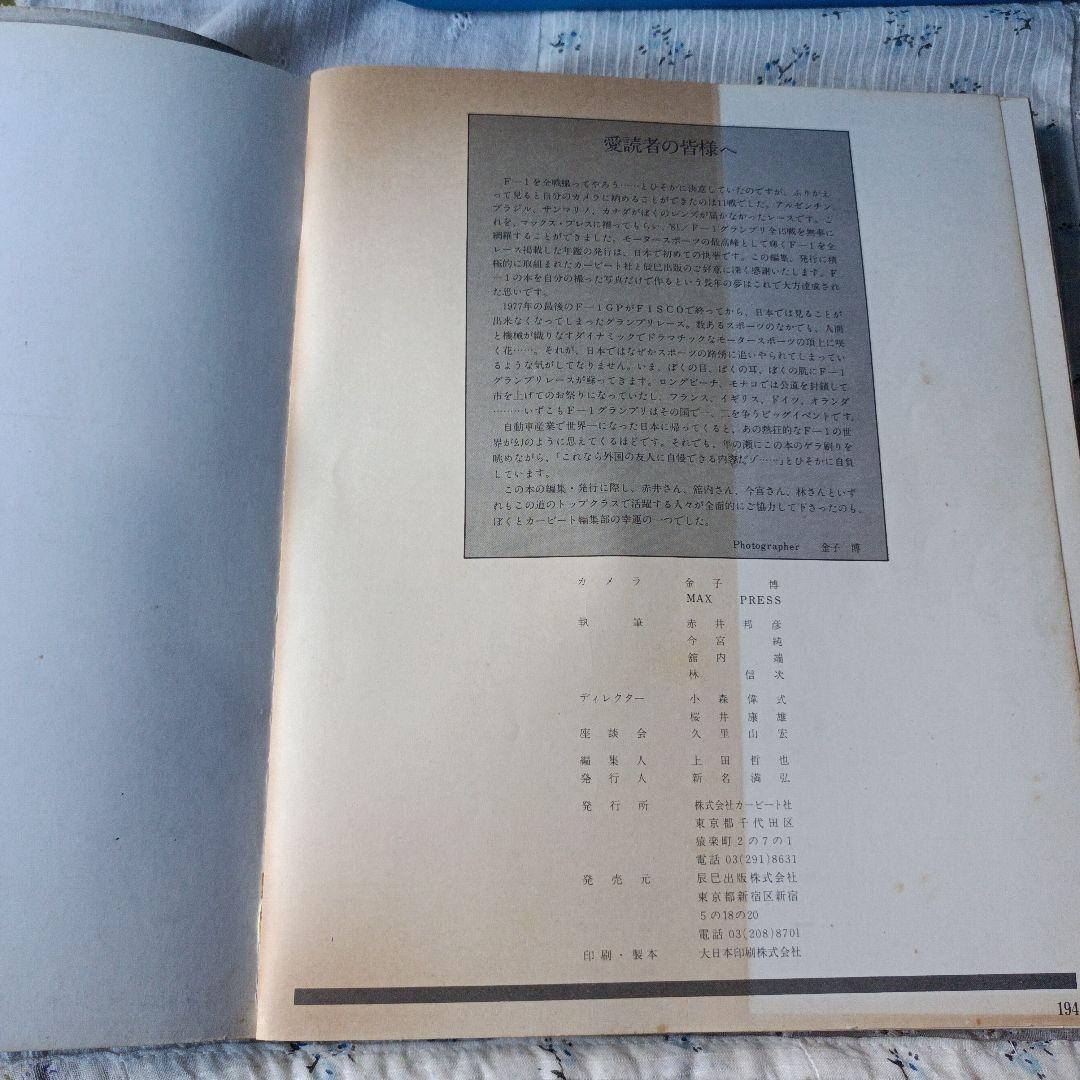 愛読者の皆様へ
F―1を全戦撮ってやろう……とひそかに決意していたのですが、ふりかえ
って見ると自分のカメラに納めることができたのは11戦でした。アルゼンチン、
ブラジル、サンマリノ、カナダがぼくのレンズが届かなかったレースです。こ
れを、マックス・プレスに補ってもらい、'81／F―1グランプリ全15戦を無事に
網羅することができました。モータースポーツの最高峰として輝くF―1を全
レース掲載した年鑑の発行は、日本で初めての快挙です。この編集、発行に積
極的に取組まれたカービート社と辰巳出版のご好意に深く感謝いたします。F
―1の本を自分の撮った写真だけで作るという長年の夢はこれで大方達成され
た思いです。
1977年の最後のF―1GPがFISCOで終ってから、日本では見ることが
出来なくなってしまったグランプリレース。数あるスポーツのなかでも、人間
と機械が織りなすダイナミックでドラマチックなモータースポーツの頂上に咲
く花……。それが、日本ではなぜかスポーツの路傍に追いやられてしまってい
るような気がしてなりません。いま、ぼくの目、ぼくの耳、ぼくの肌にF―1
グランプリレースが蘇ってきます。ロングビーチ、モナコでは公道を封鎖して
市を上げてのお祭りになっていたし、フランス、イギリス、ドイツ、オランダ
………いずこもF―1グランプリはその国で一、二を争うビッグイベントです。
自動車産業で世界一になった日本に帰ってくると、あの熱狂的なF―1の世
界が幻のように思えてくるほどです。それでも、年の瀬にこの本のゲラ刷りを
眺めながら、「これなら外国の友人に自慢できる内容だゾ……」とひそかに自負
しています。
この本の編集・発行に際し、赤井さん、舘内さん、今宮さん、林さんといず
れもこの道のトップクラスで活躍する人々が全面的にご協力して下さったのも、
ぼくとカービート編集部の幸運の一つでした。
Photographer 金子 博
カメラ 金子 博
MAX PRESS
執筆 赤井邦彦
今宮 純
舘内 端
林 信次
ディレクター 小森偉式
桜井康雄
座談会 久里山宏
編集人 上田哲也
発行人 新名満弘
発行所 株式会社カービート社
東京都千代田区
猿楽町2の7の1
電話 03(291)8631
発売元 辰巳出版株式会社
東京都新宿区新宿
5の18の20
電話 03(208)8701
印刷・製本 大日本印刷株式会社
194